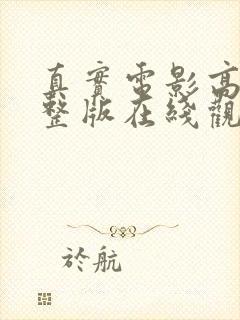 真實電影高
整版在綫觀
於航